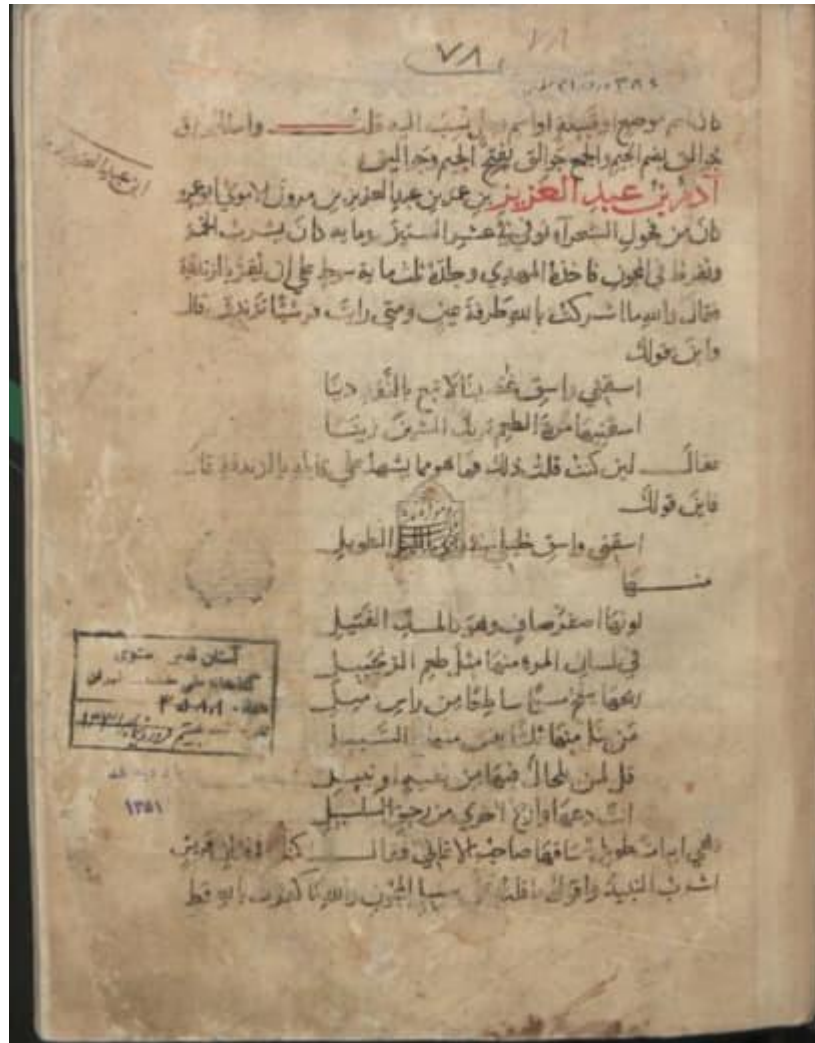 ٧٨
كان اسم موضع او قبيلة او اسم رجل نسب اليه قلت واسالجو
جوالق بضم الجيم والجمع جوالق بفتح الجيم وجواليق
آدم بن عبد العزيز بن عمر بن عبد العزيز بن مروان الاموي ابو عمرو
كان من فحول الشعرآء توفي في عشر الستين وماية كان يشرب الخمر
ويفرط في المجون فاخذه المهدي وجلده ثلث ماية سوط على ان يقر بالزندقة
فقال والله ما اشركت بالله طرفة عين ومتى رايت قرشيا تزندق قال
واين قولك
اسقني واسق غصينا لا تبع بالنقد دينا
اسقنيها مزة الطعم تريك الشين زينا
فقال لين كنت قلت ذلك فما هو مما يشهد على قايله بالزندقة قال
فاين قولك
اسقني واسق خليلي في مدى الليل الطويل
منها
لونها اصفر صاف وهو كالمسك الفتيل
في لسان المرء منها مثل طعم الزنجبيل
ريحها ينفح منها ساطعا من راس ميل
من ينل منها ثلثا ينس منهاج السبيل
قل لمن يلحاك فيها من فقيه او نبيل
انت دعها وارج اخرى من رحيق السلسبيل
وهي ابيات طويلة ساقها صاحب الاغاني وقال كنت من فتيان قريش
اشرب النبيذ واقول ما قلت على سبيل المجون والله ما كفرت بالله قط
آستان قدس رضوى
كتابخانه ملى ملك تهران
١٣٥١